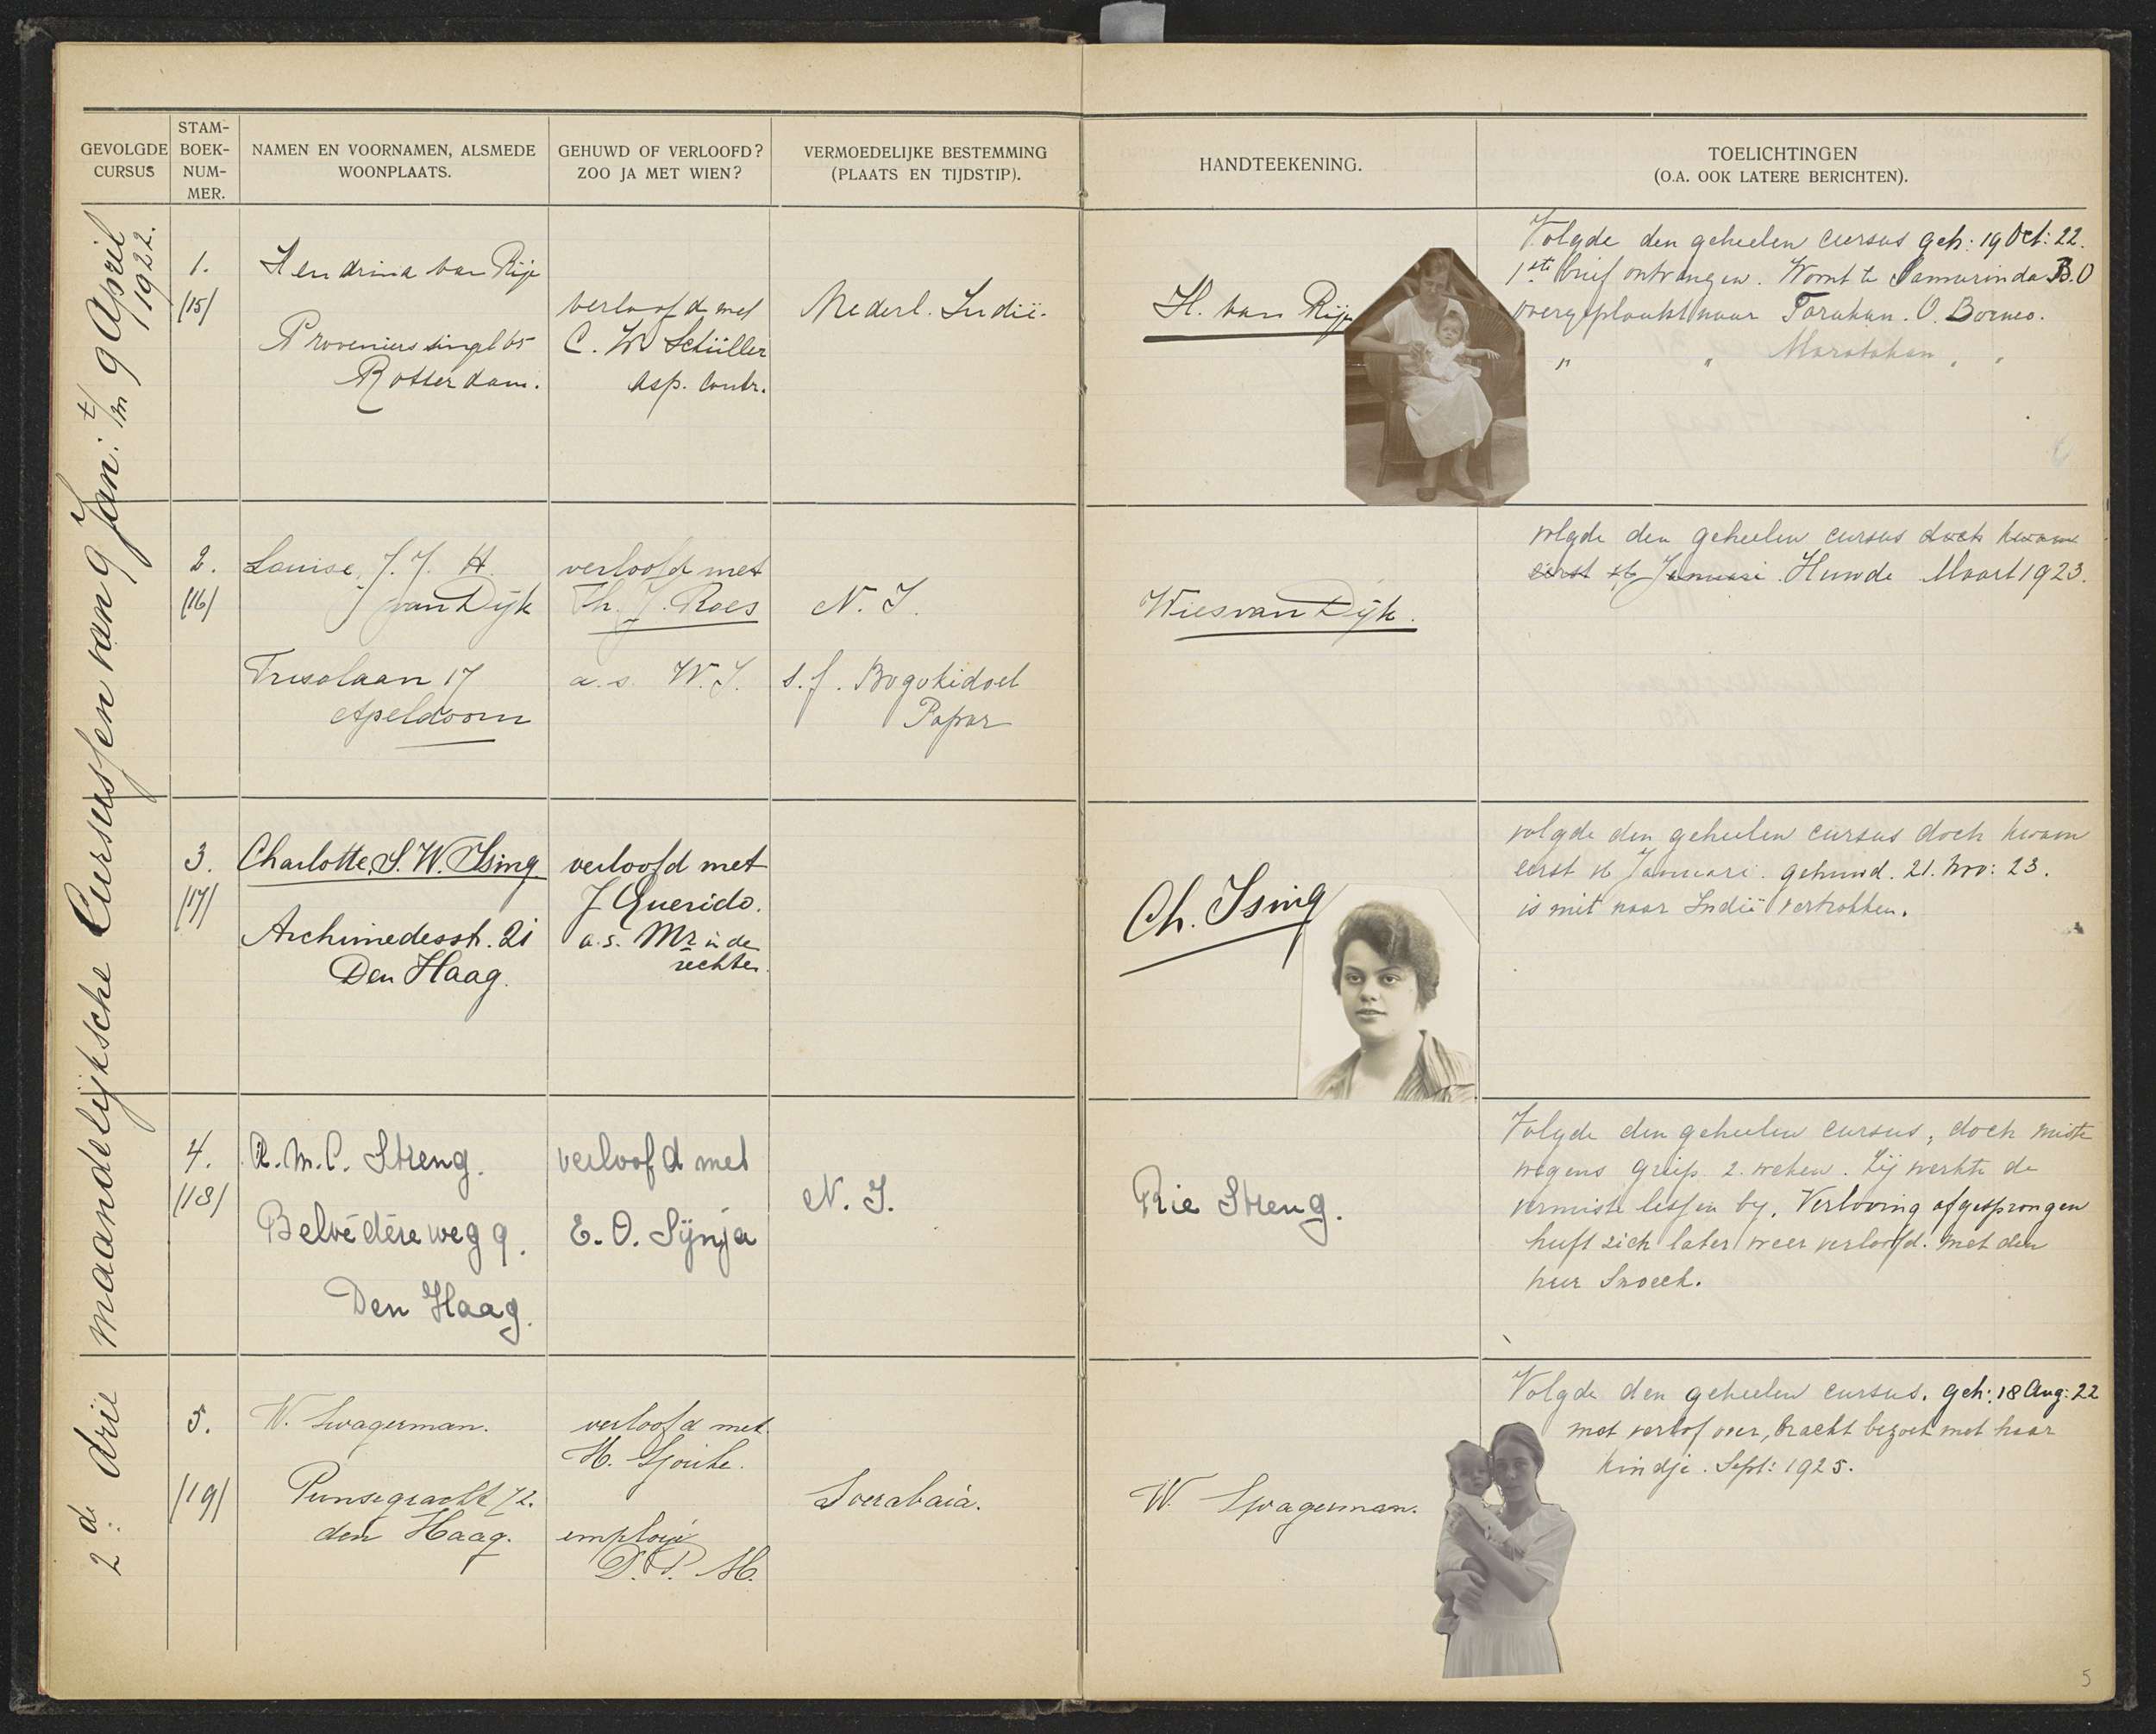 GEVOLGDE CURSUS
STAM-BOEK-NUM-MER.
NAMEN EN VOORNAMEN, ALSMEDE WOONPLAATS.
GEHUWD OF VERLOOFD? ZOO JA MET WIEN?
VERMOEDELIJKE BESTEMMING (PLAATS EN TIJDSTIP).
HANDTEEKENING.
TOELICHTINGEN (O.A. OOK LATERE BERICHTEN).
2de drie maandelijksche Cursussen van 9 Jan: t/m 9 April 1922.
1.
/15/
Hendrina van Rije
Proveniers singel 65
Rotterdam.
verloofd met
C. W. Schüller
asp. contr.
Nederl. Indië.
H. van Rije
Volgde den geheelen cursus geh: 19 Oct: 22.
1ste brief ontvangen. Woont te Samarinda B.O
overgeplaatst naar Tarakan. O. Borneo.
" " Marabahan " "
2.
/16/
Louise, J. J. H.
van Dijk
Frisolaan 17
Apeldoorn
verloofd met
Th. J. Roes
a.s. W.I.
N. I.
s.f. Bogokidoel
Papar
Wies van Dijk.
volgde den geheelen cursus doch kwam
eerst 16 Januari. Huwde Maart 1923.
3.
/17/
Charlotte, S. W. Ising
Archimedesstr. 21
Den Haag.
verloofd met
J Querido.
a.s. Mr in de
rechten.
Ch. Ising
volgde den geheelen cursus doch kwam
eerst 16 Januari. gehuwd. 21. Nov: 23.
is niet naar Indië vertrokken.
4.
/18/
R. M. C. Streng.
Belvédère weg 9.
Den Haag.
verloofd met
E. O. Sijnja
N. I.
Rie Streng.
Volgde den geheelen cursus, doch miste
wegens griep 2. weken. Zij werkte de
vermiste lessen by. Verloving afgesprongen
heeft zich later weer verloofd. met den
heer Snoeck.
5.
/19/
W. Swagerman.
Prinsegracht 72.
den Haag.
verloofd met
H. Sjouke.
employé
D. P. M.
Soerabaia.
W. Swagerman.
Volgde den geheelen cursus. geh: 18 Aug: 22
met verlof over, bracht bezoek met haar
kindje. Sept: 1925.
5